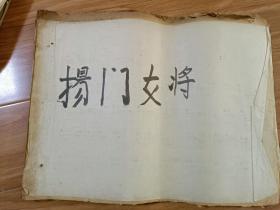 揚门女将